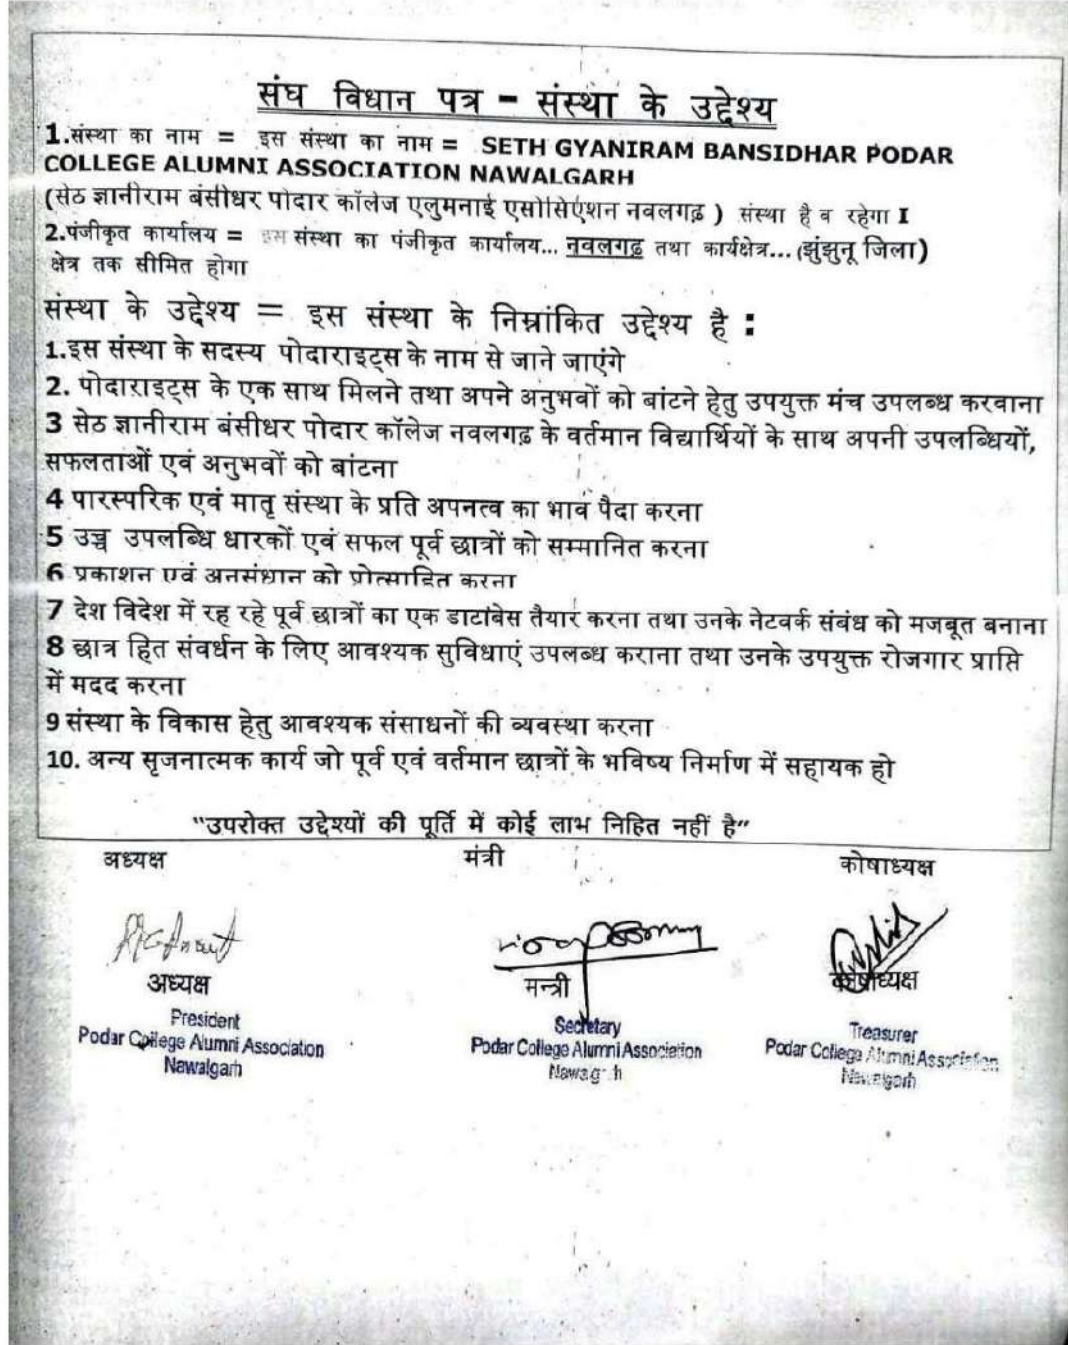 संघ विधान पत्र – संस्था के उद्देश्य
1.संस्था का नाम = इस संस्था का नाम = SETH GYANIRAM BANSIDHAR PODAR
COLLEGE ALUMNI ASSOCIATION NAWALGARH
(सेठ ज्ञानीराम बंसीधर पोदार कॉलेज एलुमनाई एसोसिएशन नवलगढ़ ) संस्था है व रहेगा I
2.पंजीकृत कार्यालय = इस संस्था का पंजीकृत कार्यालय... नवलगढ़ तथा कार्यक्षेत्र...(झुंझुनू जिला)
क्षेत्र तक सीमित होगा
संस्था के उद्देश्य = इस संस्था के निम्नांकित उद्देश्य है :
1.इस संस्था के सदस्य पोदाराइट्स के नाम से जाने जाएंगे
2. पोदाराइट्स के एक साथ मिलने तथा अपने अनुभवों को बांटने हेतु उपयुक्त मंच उपलब्ध करवाना
3 सेठ ज्ञानीराम बंसीधर पोदार कॉलेज नवलगढ़ के वर्तमान विद्यार्थियों के साथ अपनी उपलब्धियों,
सफलताओं एवं अनुभवों को बांटना
4 पारस्परिक एवं मातृ संस्था के प्रति अपनत्व का भाव पैदा करना
5 उच्च उपलब्धि धारकों एवं सफल पूर्व छात्रों को सम्मानित करना
6 प्रकाशन एवं अनुसंधान को प्रोत्साहित करना
7 देश विदेश में रह रहे पूर्व छात्रों का एक डाटाबेस तैयार करना तथा उनके नेटवर्क संबंध को मजबूत बनाना
8 छात्र हित संवर्धन के लिए आवश्यक सुविधाएं उपलब्ध कराना तथा उनके उपयुक्त रोजगार प्राप्ति
में मदद करना
9 संस्था के विकास हेतु आवश्यक संसाधनों की व्यवस्था करना
10. अन्य सृजनात्मक कार्य जो पूर्व एवं वर्तमान छात्रों के भविष्य निर्माण में सहायक हो
"उपरोक्त उद्देश्यों की पूर्ति में कोई लाभ निहित नहीं है"
अध्यक्ष मंत्री कोषाध्यक्ष
अध्यक्ष मन्त्री कोषाध्यक्ष
President Secretary Treasurer
Podar College Alumni Association Podar College Alumni Association Podar College Alumni Association
Nawalgarh Nawalgarh Nawalgarh